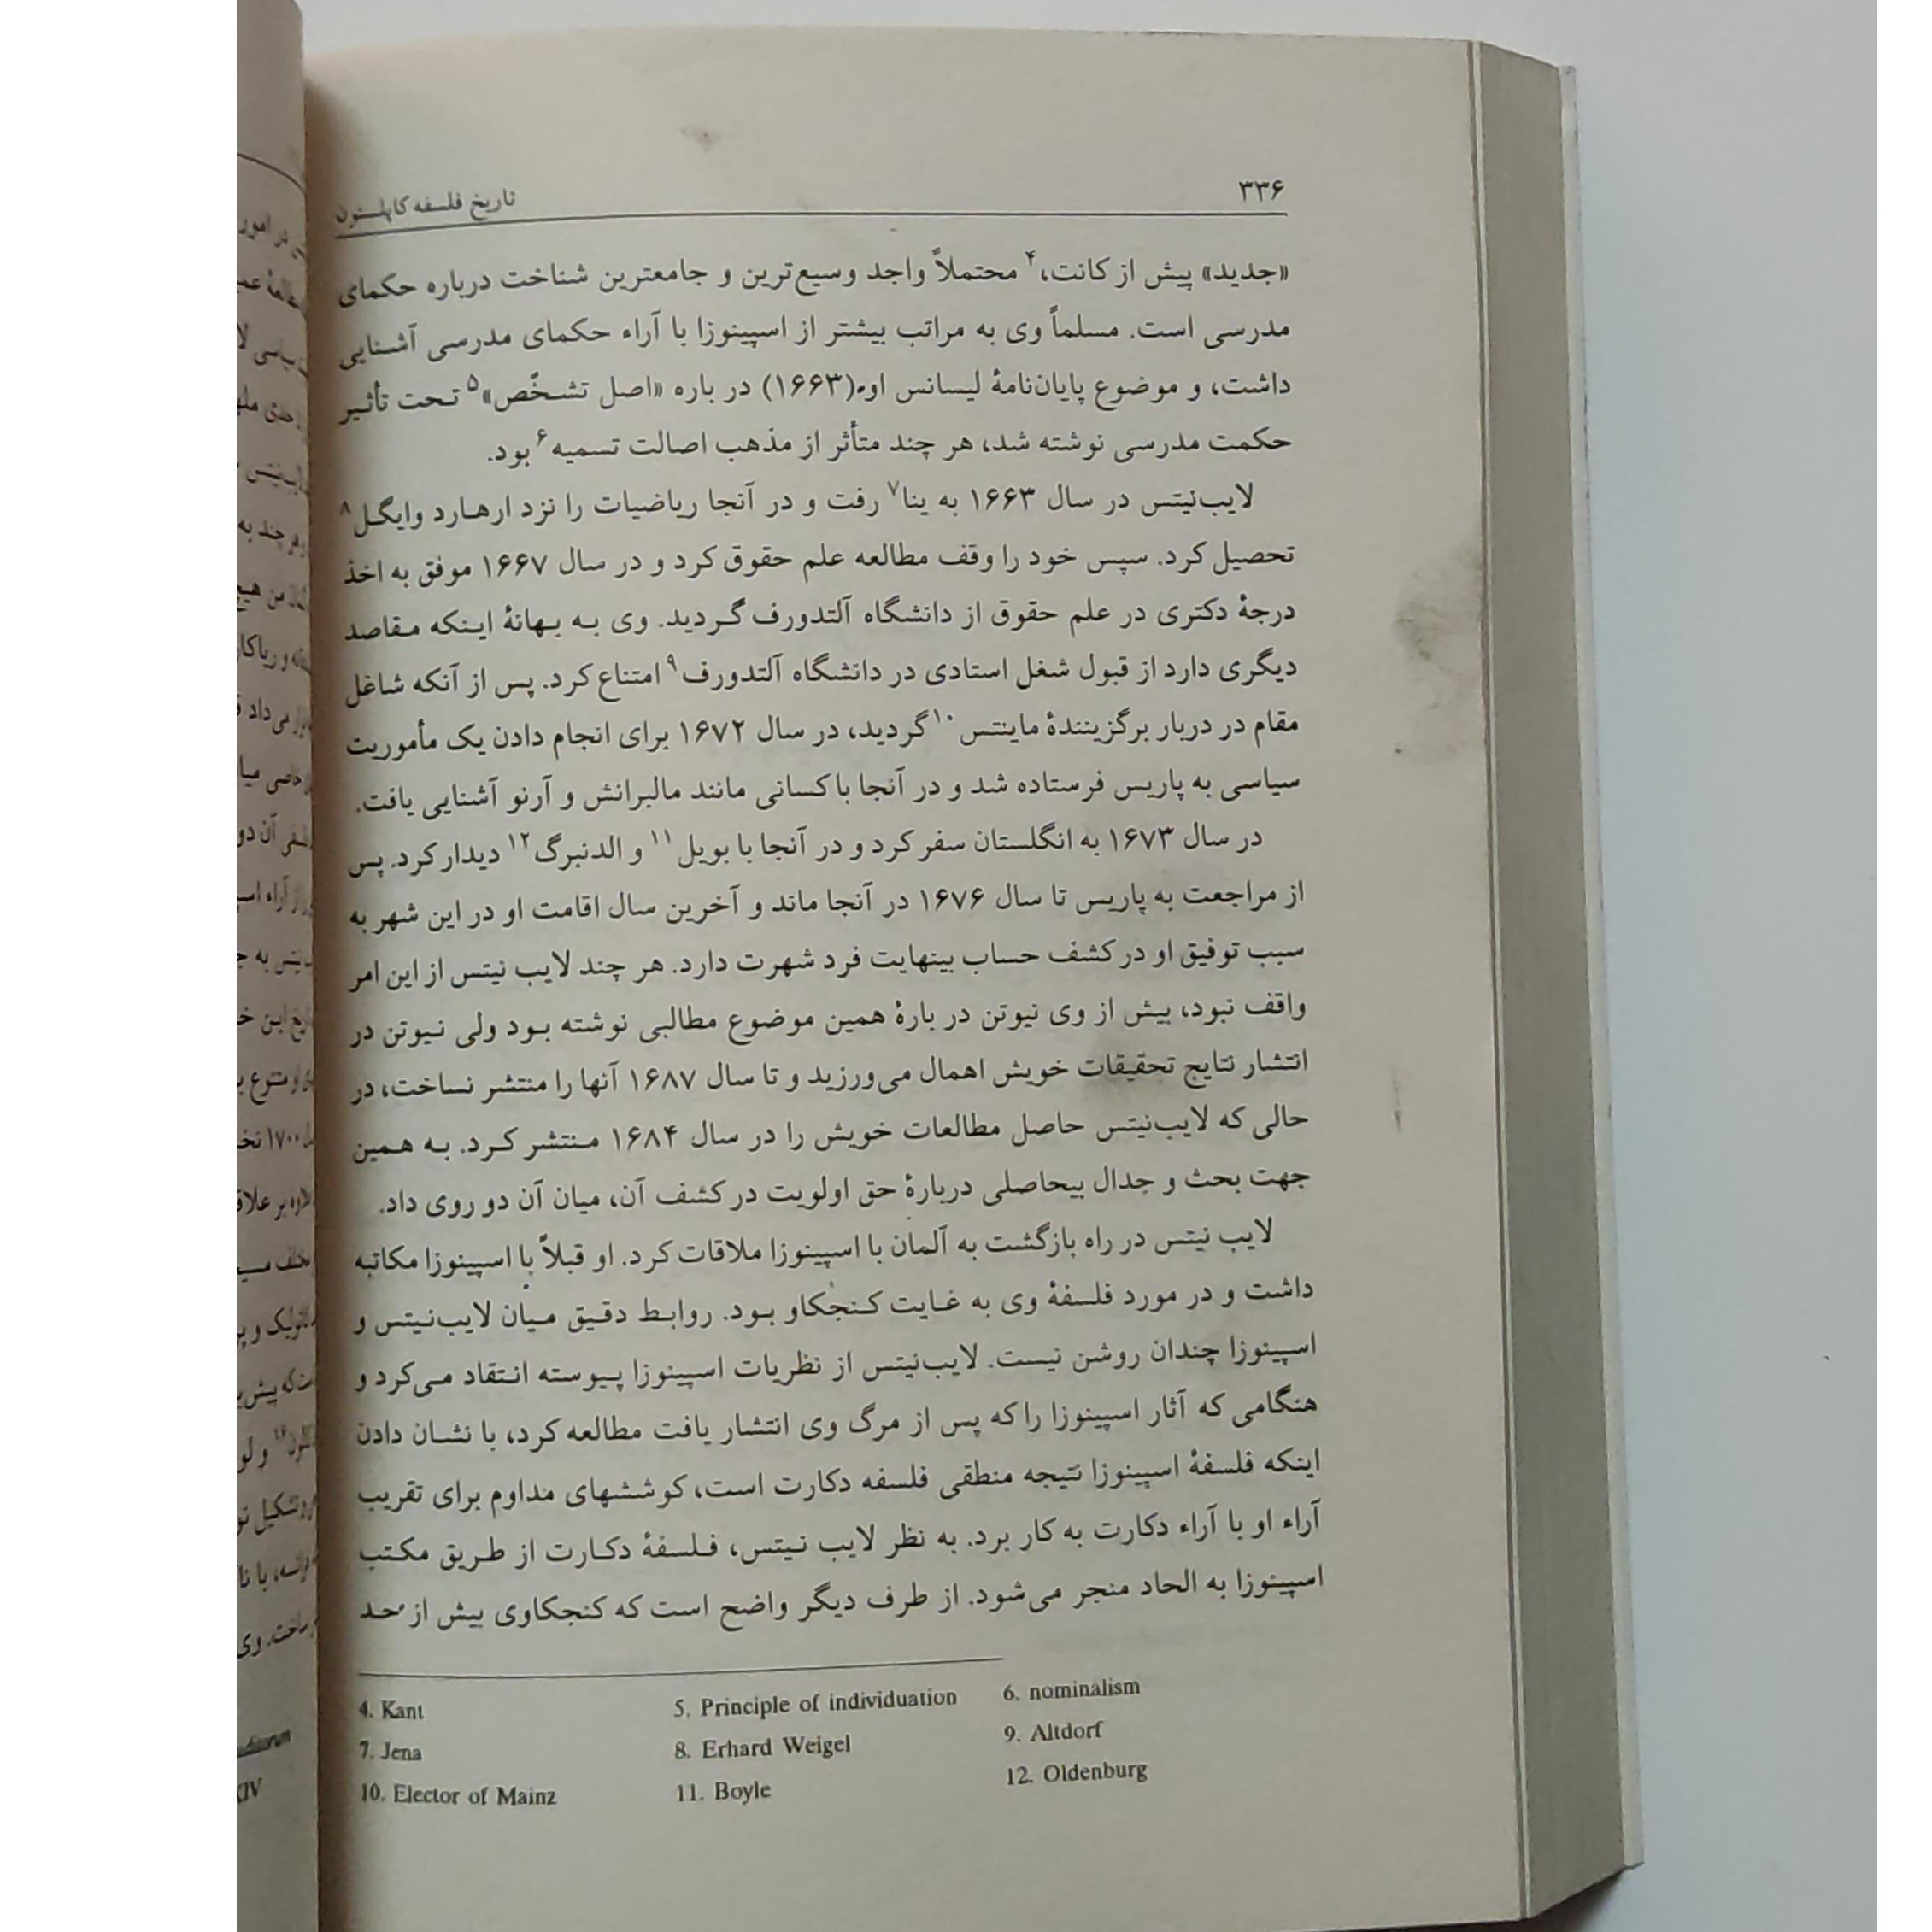 ۳۳۶
تاریخ فلسفه کاپلستون
«جدید» پیش از کانت،۴ محتملاً واجد وسیع‌ترین و جامعترین شناخت درباره حکمای
مدرسی است. مسلماً وی به مراتب بیشتر از اسپینوزا با آراء حکمای مدرسی آشنایی
داشت، و موضوع پایان‌نامهٔ لیسانس او (۱۶۶۳) در باره «اصل تشخّص»۵ تحت تأثیر
حکمت مدرسی نوشته شد، هر چند متأثر از مذهب اصالت تسمیه۶ بود.
لایب‌نیتس در سال ۱۶۶۳ به ینا۷ رفت و در آنجا ریاضیات را نزد ارهارد وایگل۸
تحصیل کرد. سپس خود را وقف مطالعه علم حقوق کرد و در سال ۱۶۶۷ موفق به اخذ
درجهٔ دکتری در علم حقوق از دانشگاه آلتدورف گردید. وی به بهانهٔ اینکه مقاصد
دیگری دارد از قبول شغل استادی در دانشگاه آلتدورف۹ امتناع کرد. پس از آنکه شاغل
مقام در دربار برگزینندهٔ ماینتس۱۰ گردید، در سال ۱۶۷۲ برای انجام دادن یک مأموریت
سیاسی به پاریس فرستاده شد و در آنجا با کسانی مانند مالبرانش و آرنو آشنایی یافت.
در سال ۱۶۷۳ به انگلستان سفر کرد و در آنجا با بویل۱۱ و الدنبرگ۱۲ دیدار کرد. پس
از مراجعت به پاریس تا سال ۱۶۷۶ در آنجا ماند و آخرین سال اقامت او در این شهر به
سبب توفیق او در کشف حساب بینهایت فرد شهرت دارد. هر چند لایب نیتس از این امر
واقف نبود، بیش از وی نیوتن در بارهٔ همین موضوع مطالبی نوشته بود ولی نیوتن در
انتشار نتایج تحقیقات خویش اهمال می‌ورزید و تا سال ۱۶۸۷ آنها را منتشر نساخت، در
حالی که لایب‌نیتس حاصل مطالعات خویش را در سال ۱۶۸۴ منتشر کرد. به همین
جهت بحث و جدال بیحاصلی دربارهٔ حق اولویت در کشف آن، میان آن دو روی داد.
لایب نیتس در راه بازگشت به آلمان با اسپینوزا ملاقات کرد. او قبلاً با اسپینوزا مکاتبه
داشت و در مورد فلسفهٔ وی به غایت کنجکاو بود. روابط دقیق میان لایب‌نیتس و
اسپینوزا چندان روشن نیست. لایب‌نیتس از نظریات اسپینوزا پیوسته انتقاد می‌کرد و
هنگامی که آثار اسپینوزا را که پس از مرگ وی انتشار یافت مطالعه کرد، با نشان دادن
اینکه فلسفهٔ اسپینوزا نتیجه منطقی فلسفه دکارت است، کوششهای مداوم برای تقریب
آراء او با آراء دکارت به کار برد. به نظر لایب نیتس، فلسفهٔ دکارت از طریق مکتب
اسپینوزا به الحاد منجر می‌شود. از طرف دیگر واضح است که کنجکاوی بیش از حد
4. Kant 5. Principle of individuation 6. nominalism
7. Jena 8. Erhard Weigel 9. Altdorf
10. Elector of Mainz 11. Boyle 12. Oldenburg